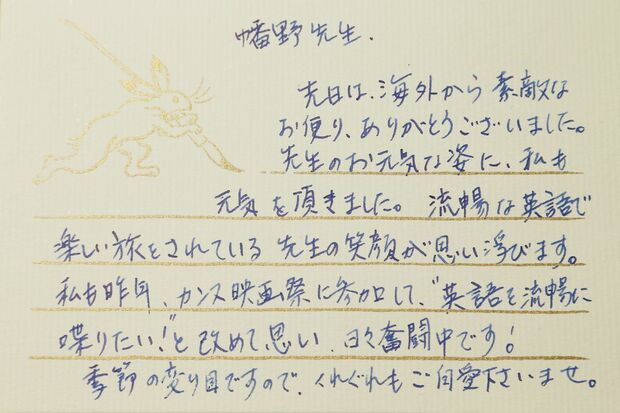 幡野先生.
先日は、海外から素敵な
お便り、ありがとうございました。
先生のお元気な姿に、私も
元気を頂きました。流暢な英語で
楽しい旅をされている先生の笑顔が思い浮びます。
私も昨年、カンヌ映画祭に参加して、"英語を流暢に
喋りたい!"と改めて思い、日々奮闘中です!
季節の変り目ですので、くれぐれもご自愛下さいませ。